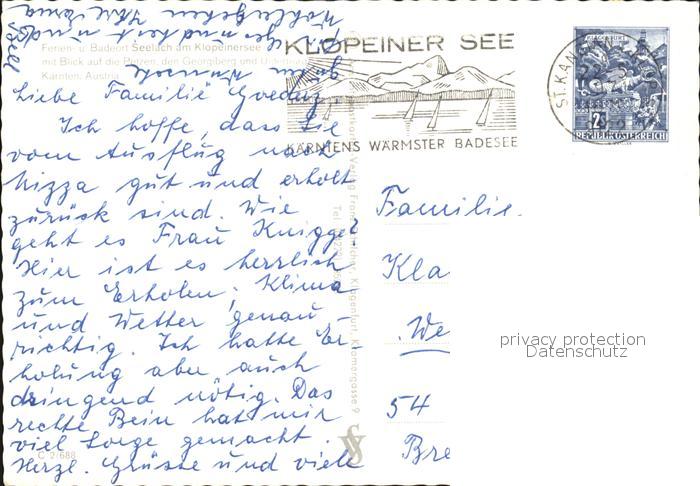 Ferien- u. Badeort Seelach am Klopeinersee
mit Blick auf die Petzen, den Georgiberg und
Kärnten, Austria
KLOPEINER SEE
KÄRNTENS WÄRMSTER BADESEE
ST. KAN
2 S
REPUBLIK ÖSTERREICH
Liebe Familie
Ich hoffe, dass Sie
vom Ausflug nach
Nizza gut und erholt
zurück sind. Wie
geht es Frau Knigge?
Hier ist es herrlich
zum Erholen, Klima
und Wetter genau
richtig. Ich hatte Er-
holung aber auch
dringend nötig. Das
rechte Bein hat mir
viel Sorge gemacht.
Herzl. Grüsse und viele
gute Wünsche
C 2/688
Klagenfurt, Kramergasse 9
Familie
Kla
We
54
Bre
privacy protection
Datenschutz